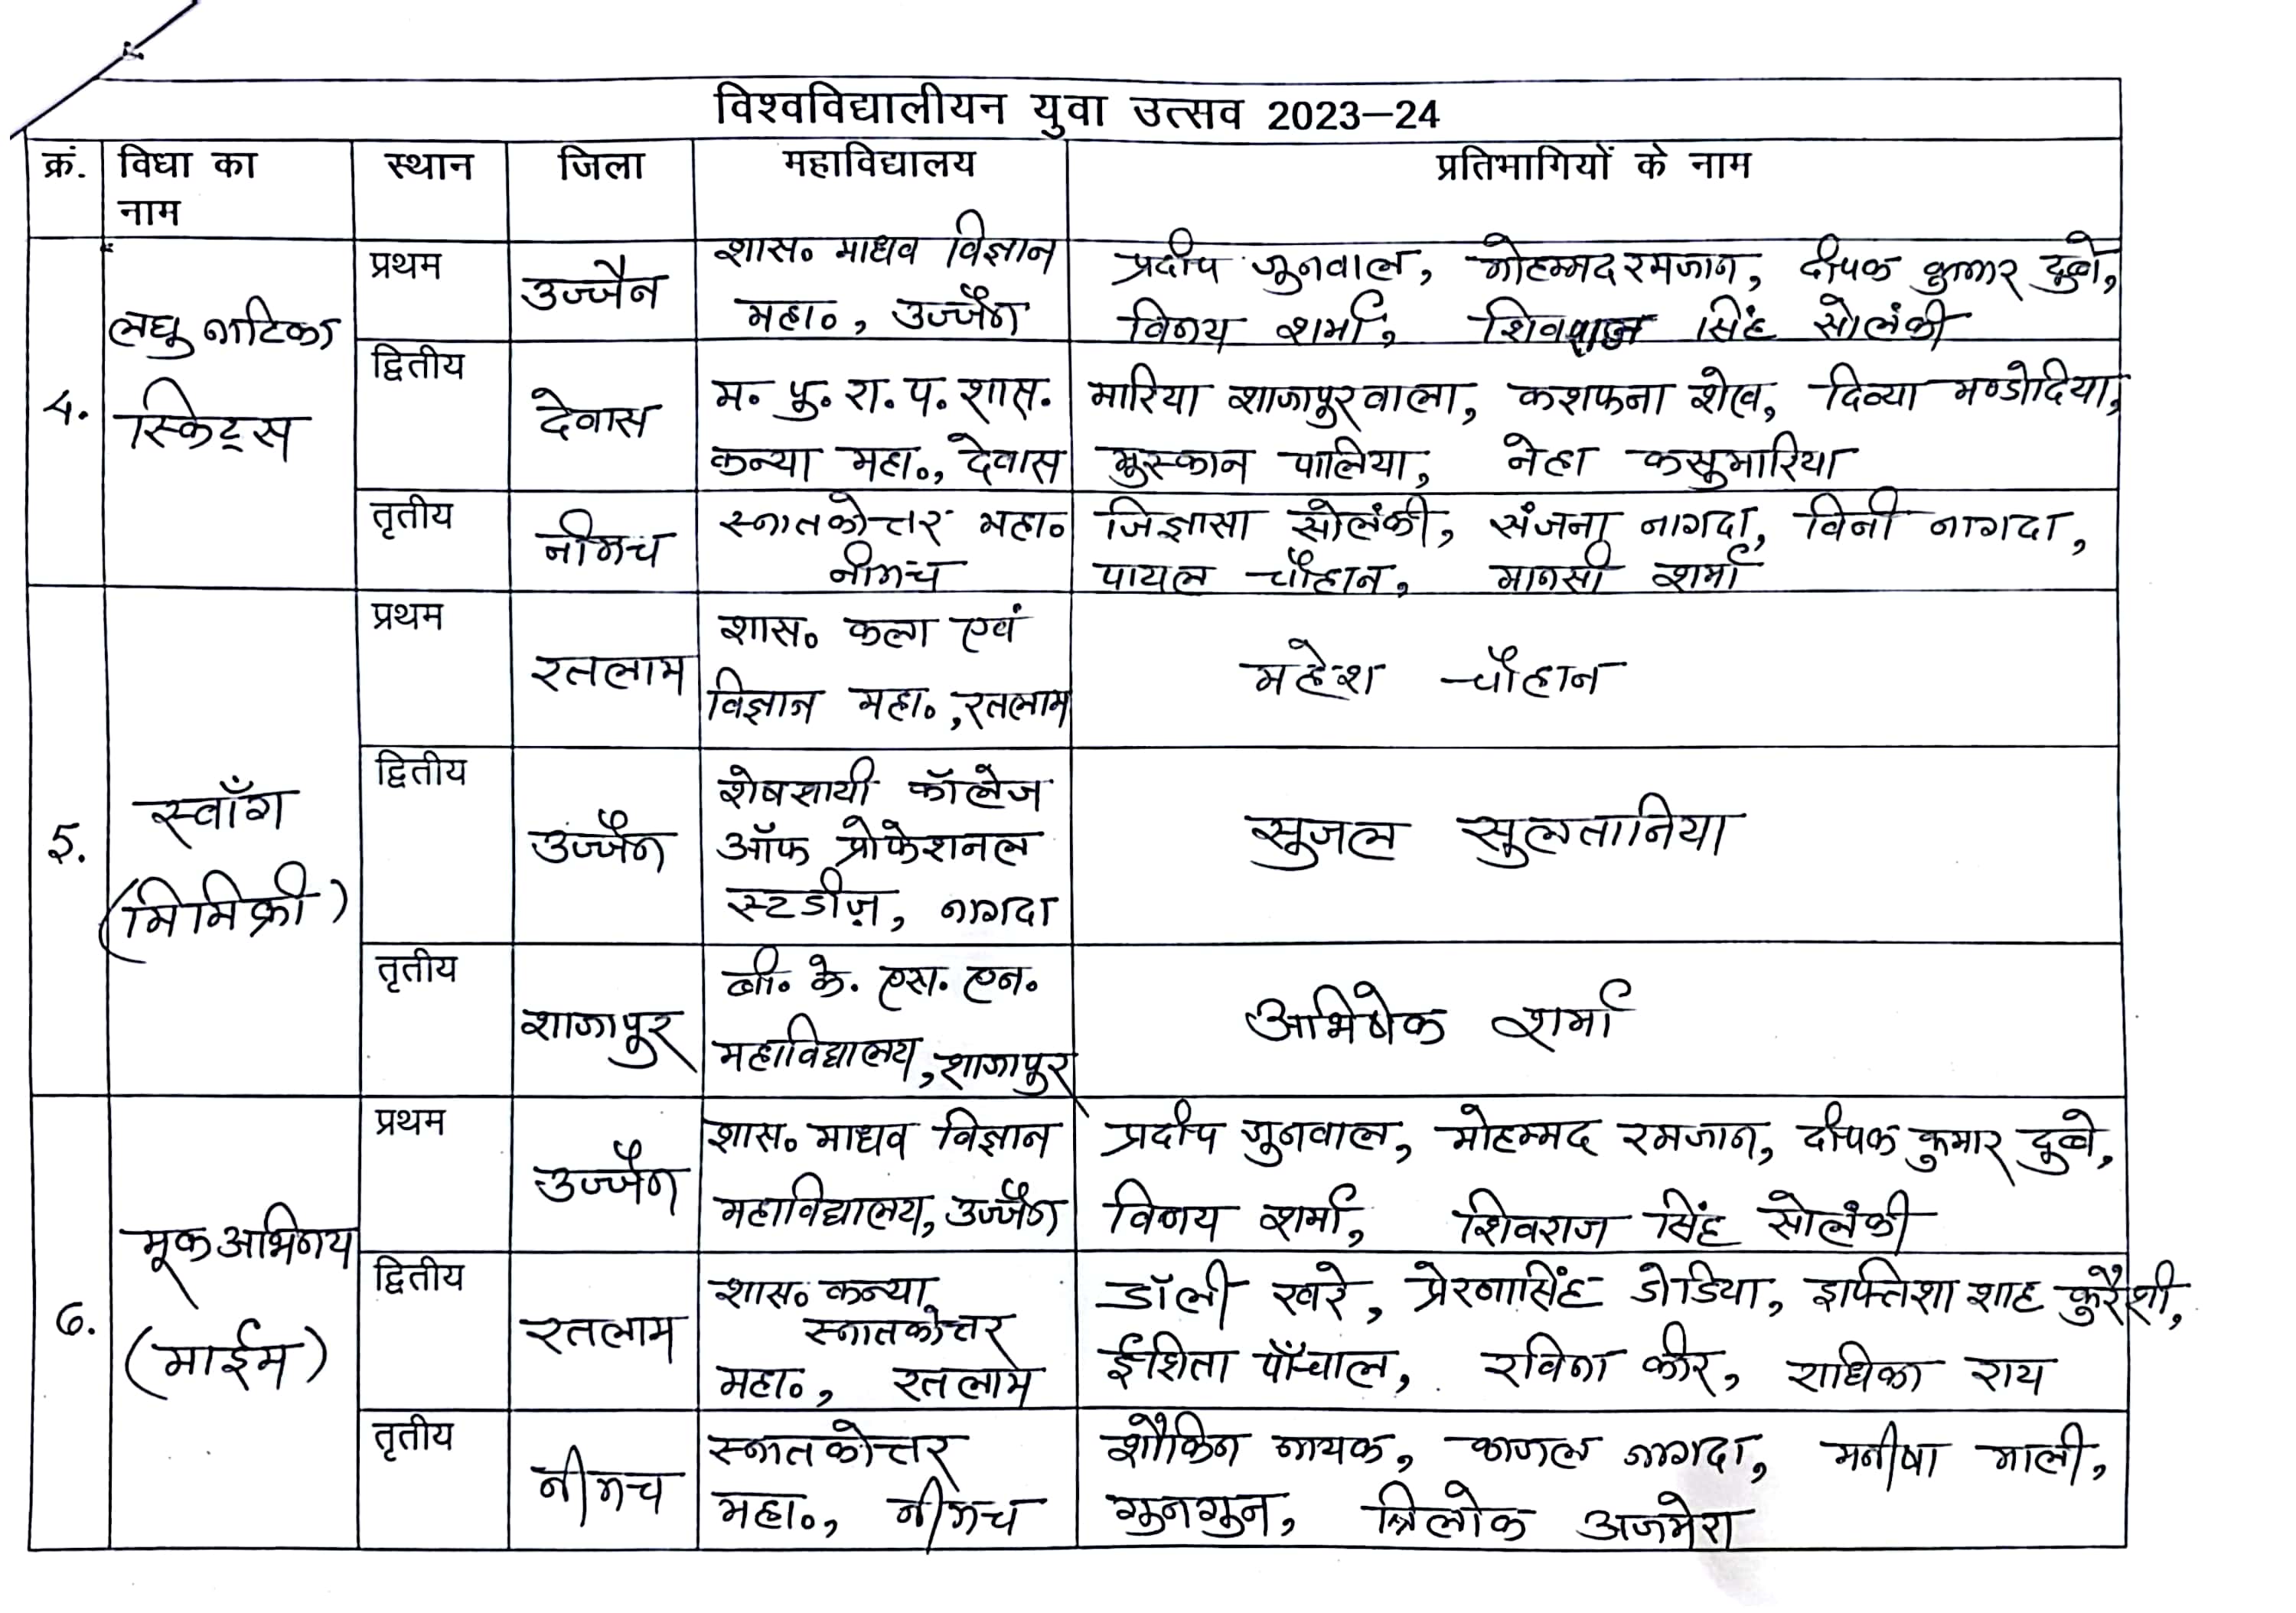 विश्वविद्यालीयन युवा उत्सव 2023–24
क्रं. विधा का स्थान जिला महाविद्यालय प्रतिभागियों के नाम
नाम
4.
लघु नाटिका
स्किट्स
प्रथम
उज्जैन
शास० माधव विज्ञान
महा०, उज्जैन
प्रदीप गुनवाल, मोहम्मद रमजान, दीपक कुमार दुबे,
विनय शर्मा, शिवराज सिंह सोलंकी
द्वितीय
देवास
म. पु. रा. प. शास.
कन्या महा०, देवास
मारिया शाजापुरवाला, कशफना शेख, दिव्या मण्डोदिया,
मुस्कान पालिया, नेहा कसुमारिया
तृतीय
नीमच
स्नातकोत्तर महा०
नीमच
जिज्ञासा सोलंकी, संजना नागदा, विनी नागदा,
पायल चौहान, मानसी शर्मा
5.
स्वाँग
(मिमिक्री)
प्रथम
रतलाम
शास० कला एवं
विज्ञान महा०, रतलाम
महेश चौहान
द्वितीय
उज्जैन
शेषसायी कॉलेज
ऑफ प्रोफेशनल
स्टडीज़, नागदा
सुजल सुलतानिया
तृतीय
शाजापुर
बी. के. एस. एन.
महाविद्यालय, शाजापुर
अभिषेक शर्मा
6.
मूक अभिनय
(माईम)
प्रथम
उज्जैन
शास० माधव विज्ञान
महाविद्यालय, उज्जैन
प्रदीप गुनवाल, मोहम्मद रमजान, दीपक कुमार दुबे,
विनय शर्मा, शिवराज सिंह सोलंकी
द्वितीय
रतलाम
शास० कन्या
स्नातकोत्तर
महा०, रतलाम
डॉली खरे, प्रेरणासिंह डोडिया, इफ्तिशा शाह कुरैशी,
ईशिता पाँचाल, रविना कीर, राधिका राय
तृतीय
नीमच
स्नातकोत्तर
महा०, नीमच
शौकिन नायक, काजल नागदा, मनीषा माली,
गुनगुन, त्रिलोक अजमेरा